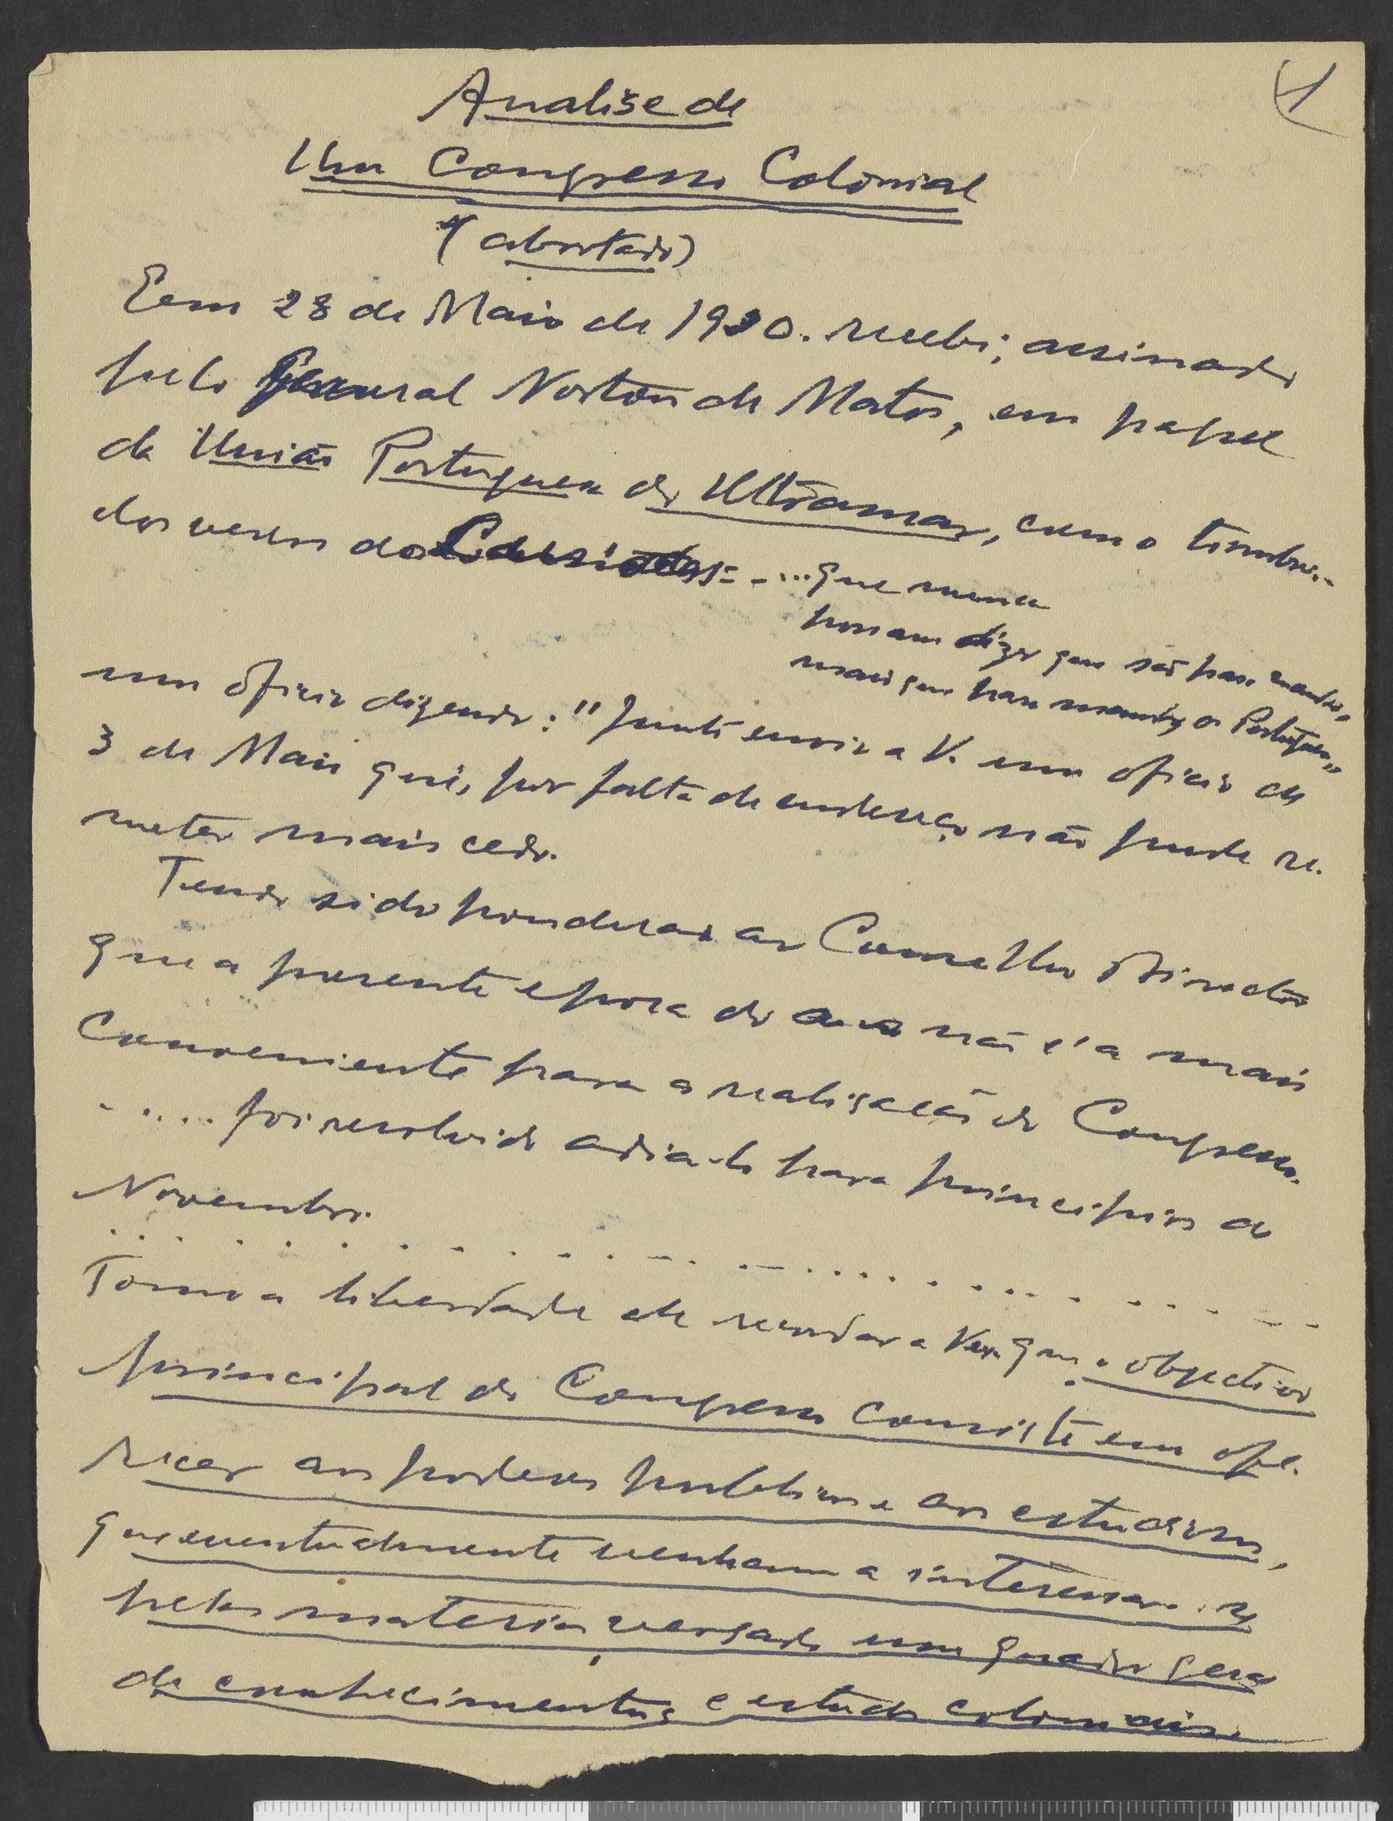 1
Analise de
Um Congresso Colonial
(abortado)
Eem 28 de Maio de 1930. recebi, assinado
pelo General Norton de Matos, em papel
da União Portuguesa do Ultramar, com o timbre
dos versos dos Lusiadas: - ...que nunca
possam dizer que são para mandados,
mais que para mandar, os Portugueses,,
um oficio dizendo: "Junto envio a V. um oficio de
3 de Maio que, por falta de endereço não pude re-
meter mais cedo.
Tendo sido ponderado ao Conselho Director
que a presente epoca do ano não é a mais
conveniente para a realisação do Congresso.
..... foi resolvido adia-lo para principios de
Novembro.
. . . . . . . . . . . . . . . . . . . . . . . .
Tomo a liberdade de recordar a Vexª que o objectivo
principal do Congresso consiste em ofe-
recer aos poderes publicos e aos estudiosos,
que eventualmente venham a interessar-se
pelas materias versadas um quadro geral
de conhecimentos e estudos coloniais.